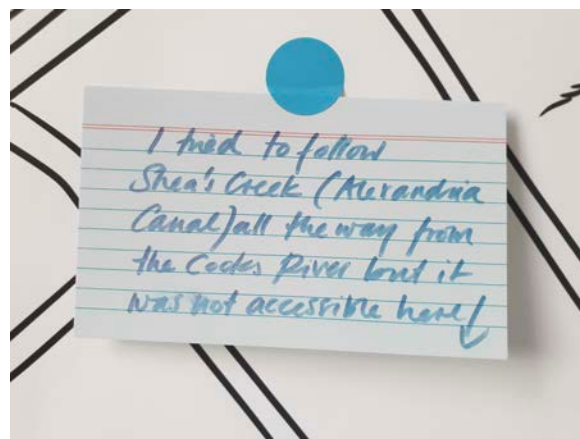 I tried to follow
Shea's Creek (Alexandria
Canal) all the way from
the Cooks River but it
was not accessible here!